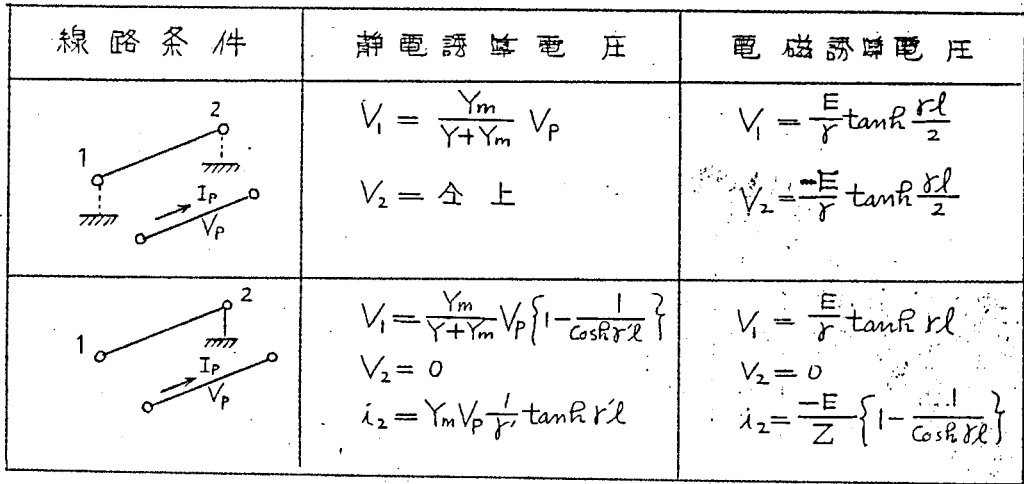 線路条件 静電誘導電圧 電磁誘導電圧
1 2 I_P V_P
V₁ = Ym/(Y+Ym) V_P
V₂ = 仝上
V₁ = E/γ tanh γl/2
V₂ = -E/γ tanh γl/2
1 2 I_P V_P
V₁ = Ym/(Y+Ym) V_P {1 - 1/cosh γ'l}
V₂ = 0
i₂ = Ym V_P 1/γ' tanh γ'l
V₁ = E/γ tanh γl
V₂ = 0
i₂ = -E/Z {1 - 1/cosh γl}